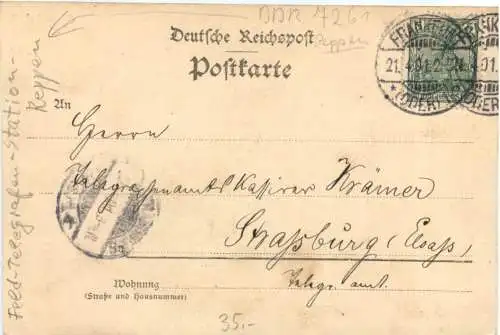 DDR 7261
Reppen
Deutsche Reichspost
Postkarte
FRANKFURT
21.4.01.2-
* (ODER) 1
An
Herrn
Telegraphenamts Kassirer Krämer
Straßburg (Elsaß)
Telegr. amt.
Wohnung
(Straße und Hausnummer)
35.-
Feld-Telegrafen-Station-
Reppen